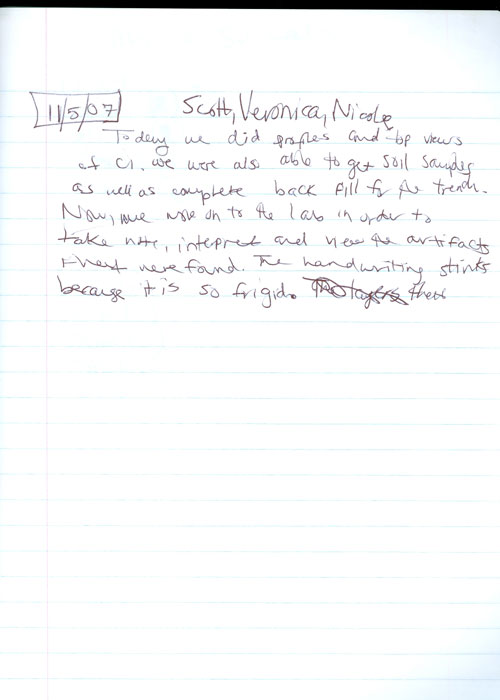 11/5/07 Scott, Veronica, Nicole
Today we did profiles and top views
of C1. We were also able to get soil samples
as well as complete back fill for the trench.
Now, we move on to the lab in order to
take note, interpret and view the artifacts
that were found. The handwriting stinks
because it is so frigid.